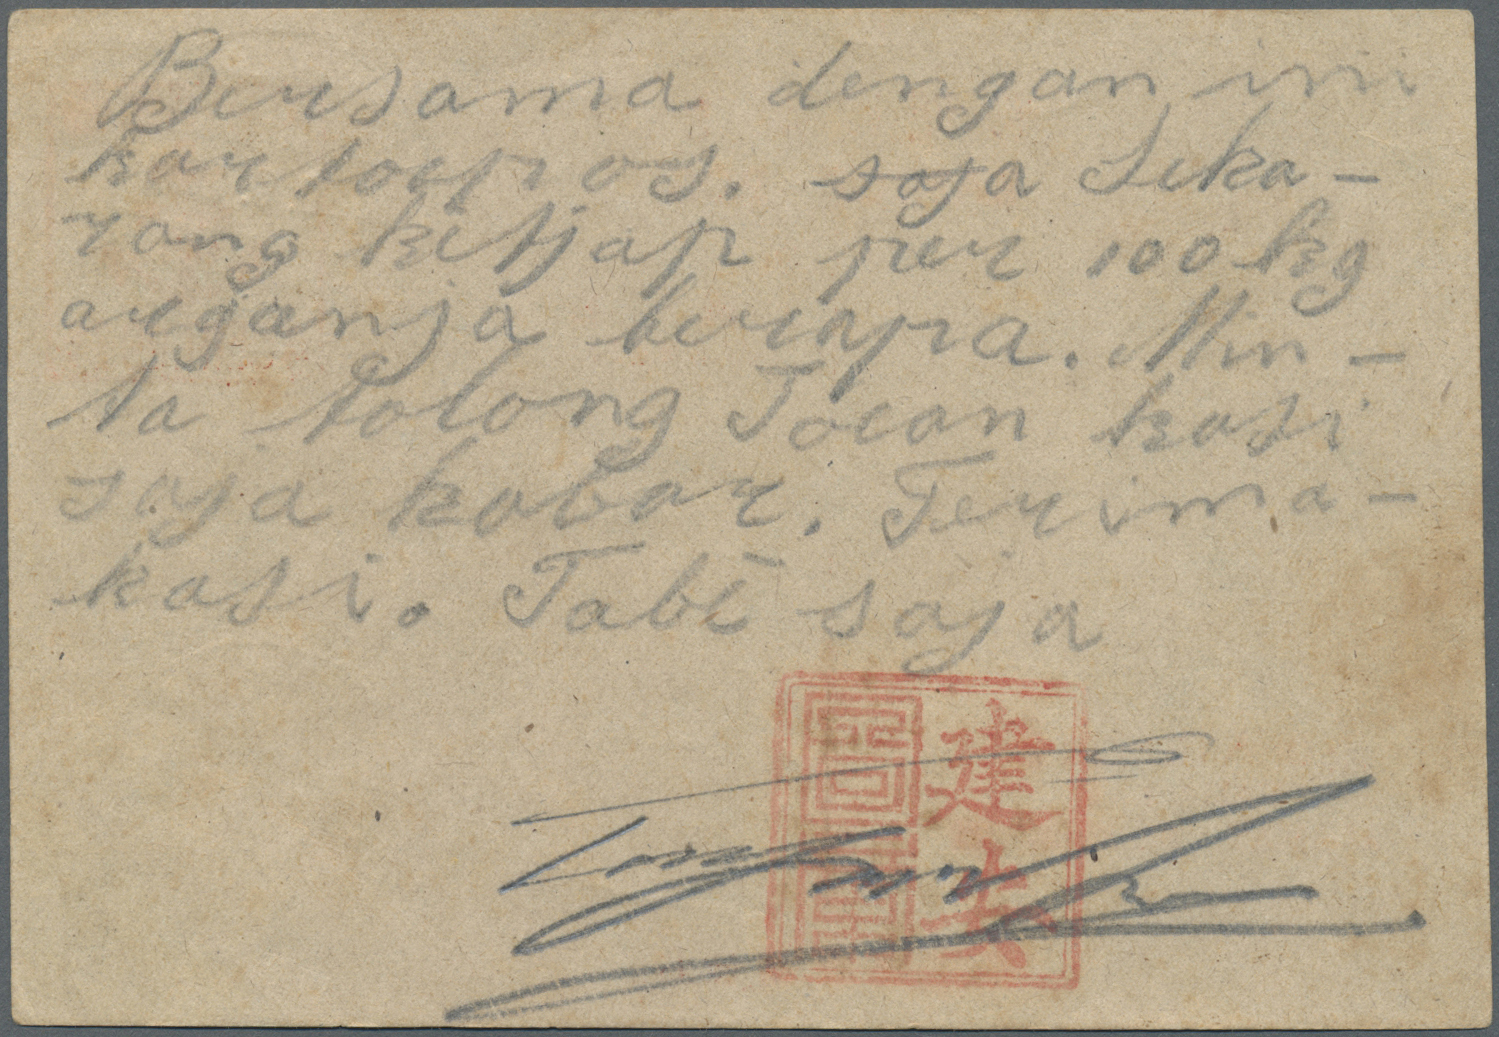 Bersama dengan ini
kartoepos. saja seka-
rang ketjap per 100 kg
arganja berapa. Min-
ta tolong Toean kasi
saja kabar. Terima-
kasi. Tabē saja
建安